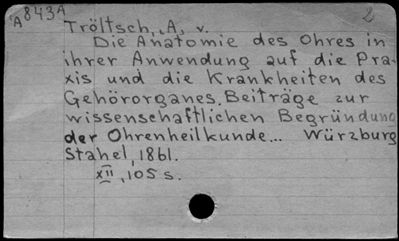 A843A
2
Tröltsch, A. v.
Die Anatomie des Ohres in
ihrer Anwendung auf die Pra-
xis und die Krankheiten des
Gehörorganes. Beiträge zur
wissenschaftlichen Begründung
der Ohrenheilkunde... Würzburg
Stahel, 1861.
XII, 105 s.